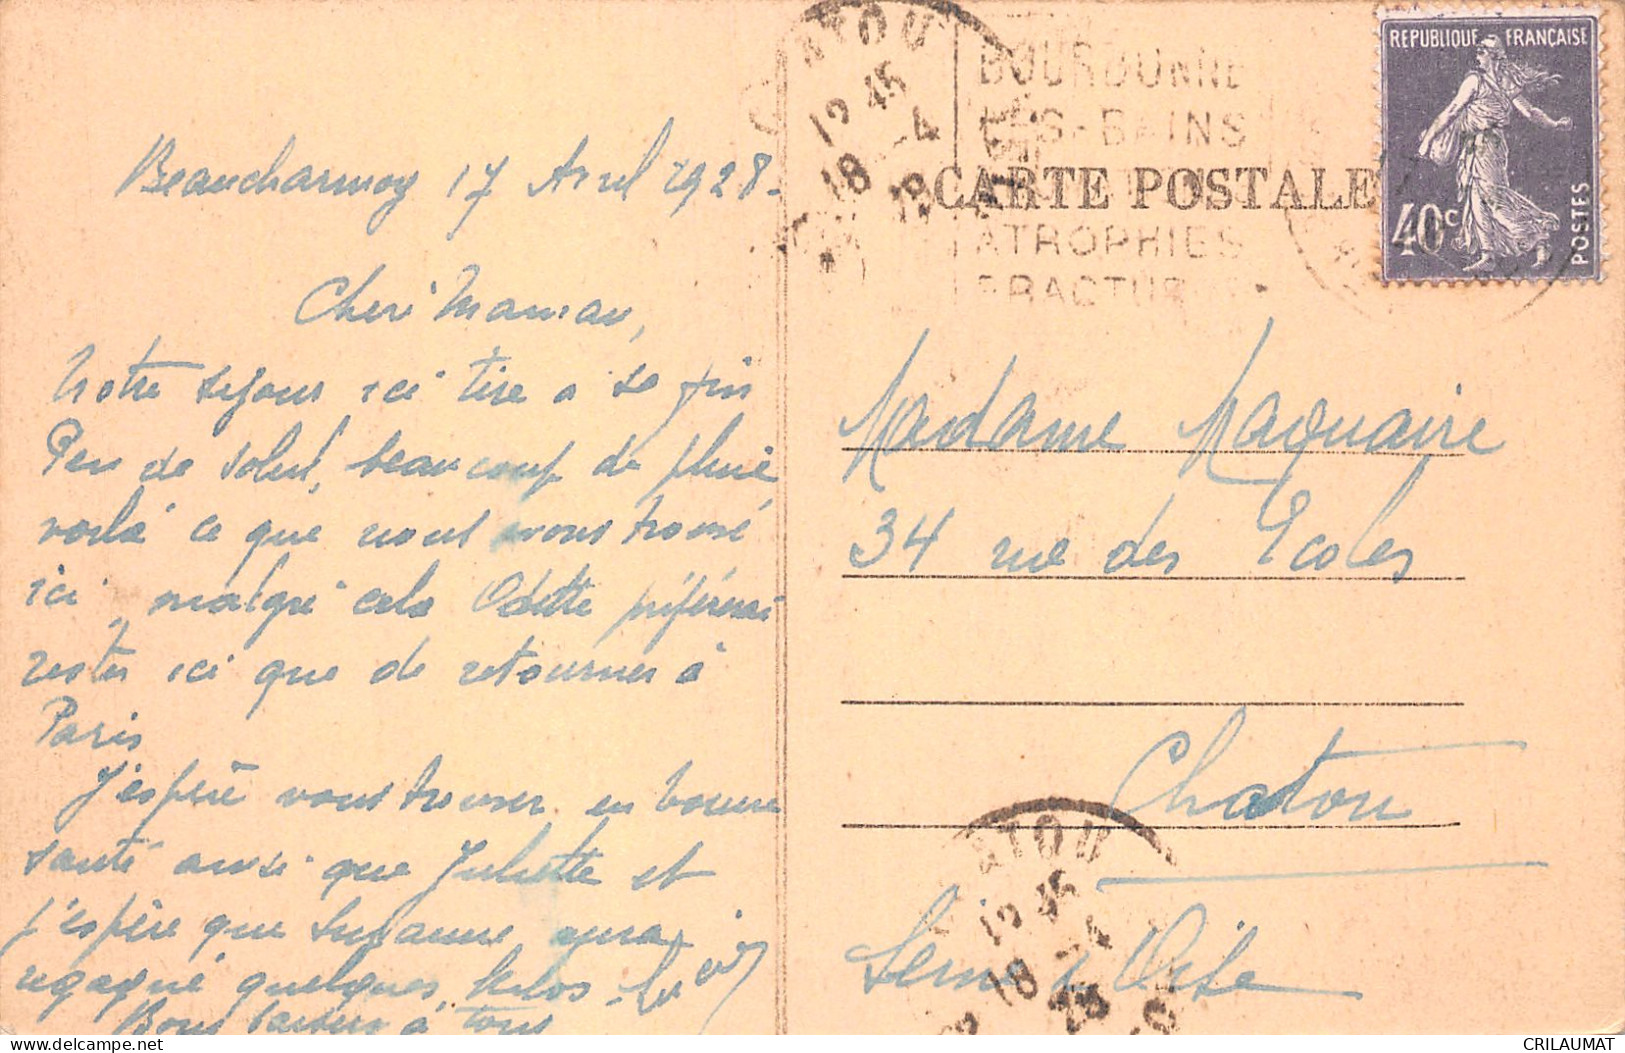 Beaucharmoy 17 Avril 1928-
Cheri Maman,
Notre sejour ici tire a sa fin
Peu de soleil, beaucoup de pluie
voilà ce que nous avons trouvé
ici, malgré cela Odette préférerai
rester ici que de retourner à
Paris
J'espère vous trouver en bonne
santé ainsi que Juliette et
j'espère que Suzanne aura
regagné quelques kilos
Bons baisers à tous
CHATOU
12 45
18 -4
28
BOURBONNE
LES-BAINS
ATROPHIES
FRACTUR
CARTE POSTALE
REPUBLIQUE FRANÇAISE
40c
POSTES
Madame Maquaire
34 rue des Ecoles
Chatou
Seine & Oise
ATOU
12 45
18 -4
28
delcampe.net
CRILAUMAT